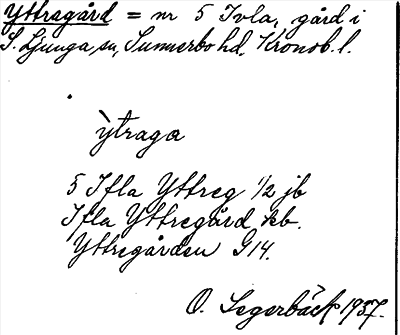 Yttregård = nr 5 Ivla, gård i
S. Ljunga sn, Sunnerbo hd, Kronob. l.
ỳtraga
5 Ifla Yttreg 1/2 jb
Ifla Yttregård kb.
Yttregården G14.
O. Segerbäck 1937.